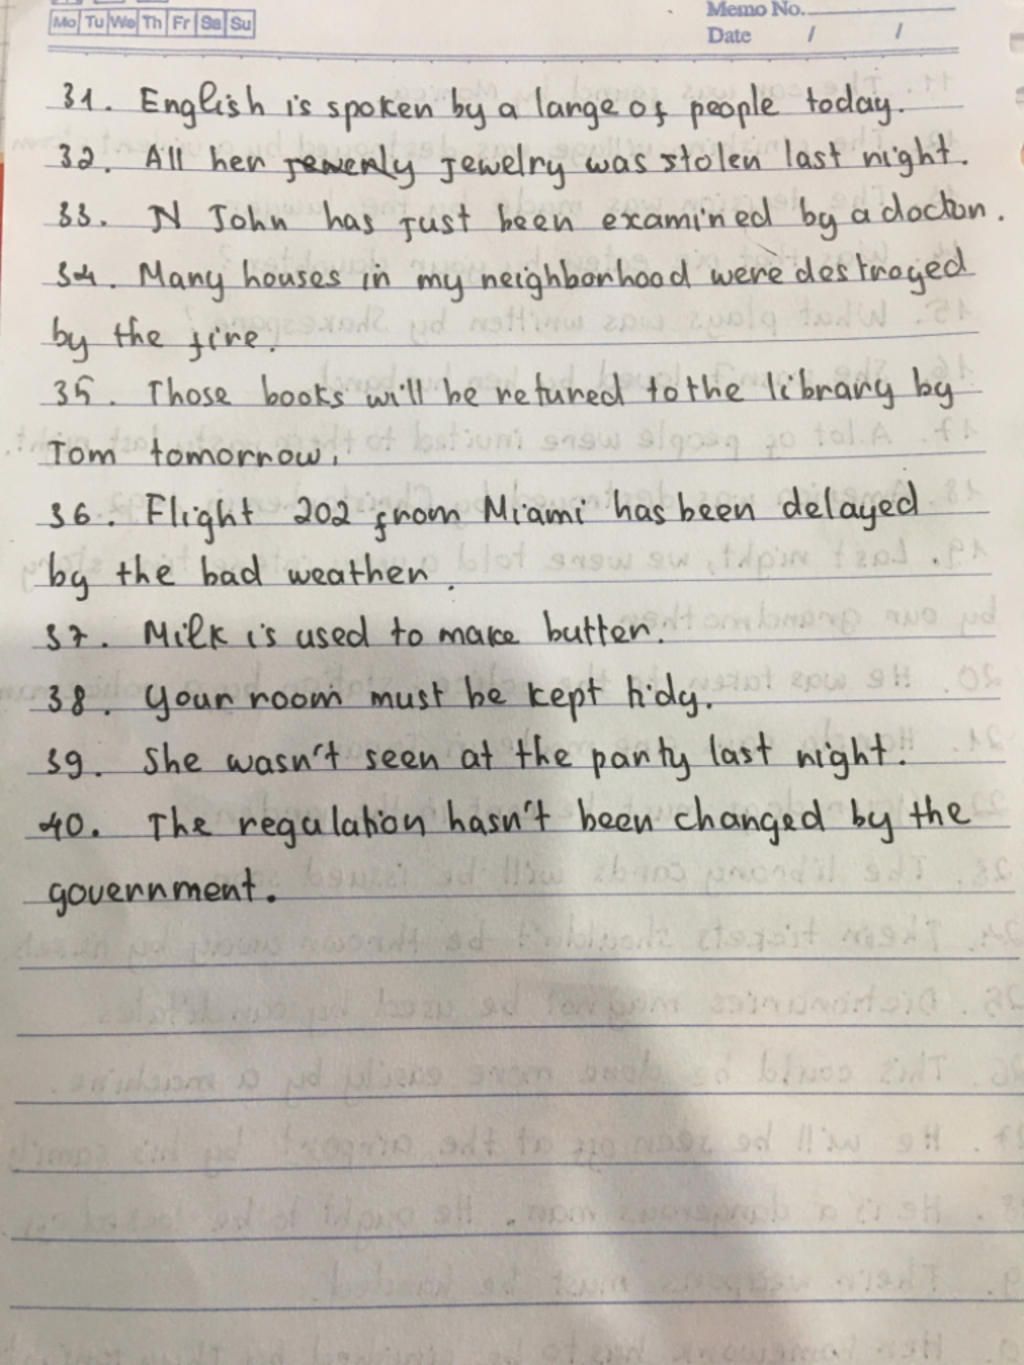 Mo Tu We Th Fr Sa Su
Memo No.
Date / /
31. English is spoken by a lange of people today.
32. All her jewerly jewelry was stolen last night.
33. N John has just been examined by a doctor.
34. Many houses in my neighborhood were destroyed
by the fire.
35. Those books will be retured to the library by
Tom tomorrow.
36. Flight 202 from Miami has been delayed
by the bad weather.
37. Milk is used to make butter.
38. Your room must be kept tidy.
39. She wasn't seen at the party last night.
40. The regulation hasn't been changed by the
government.